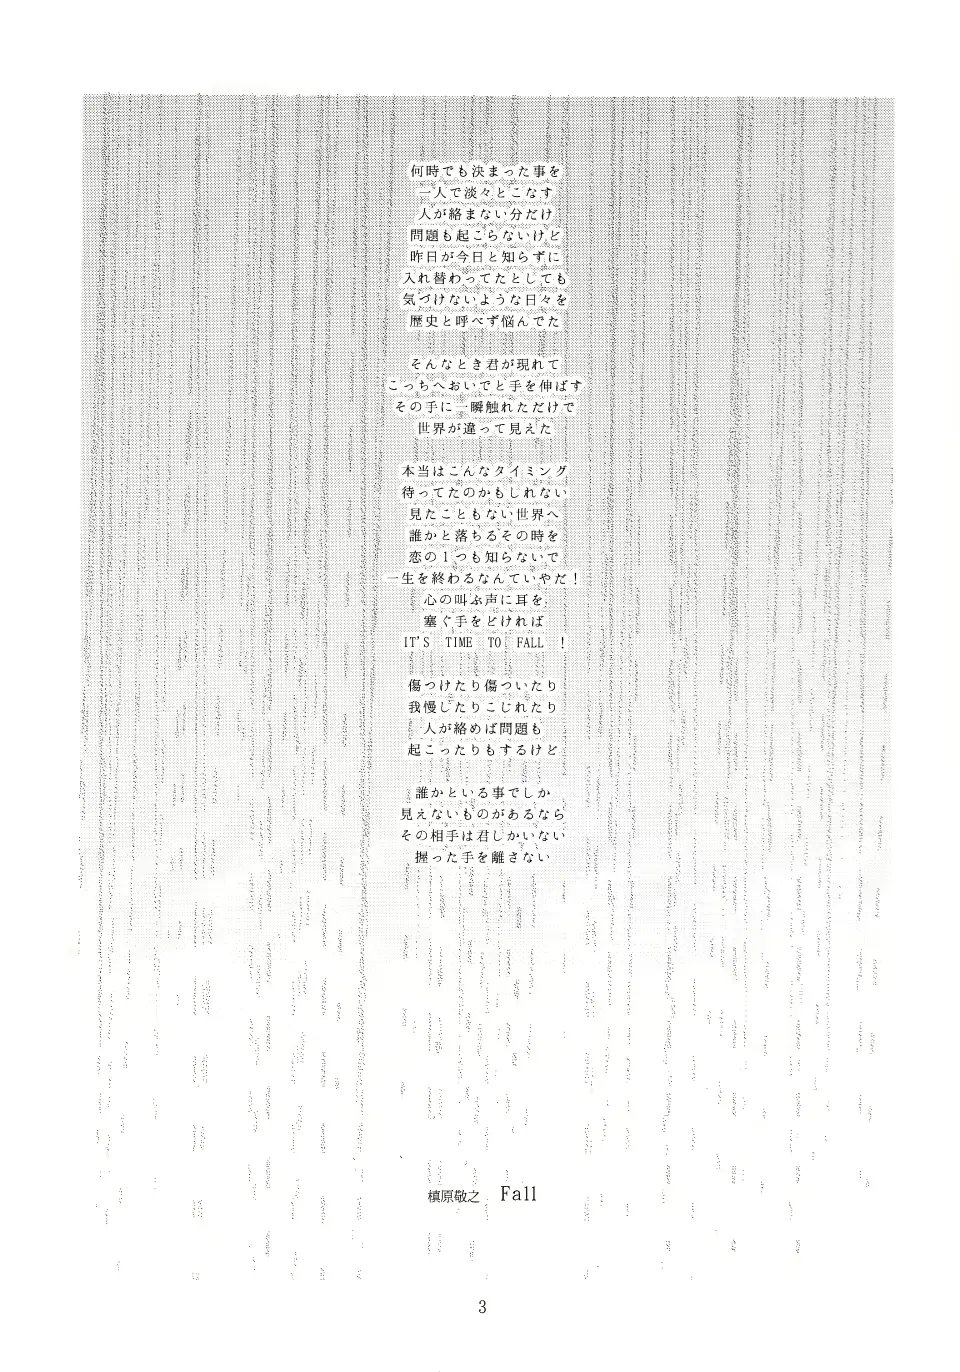 何時でも決まった事を
一人で淡々とこなす
人が絡まない分だけ
問題も起こらないけど
昨日が今日と知らずに
入れ替わってたとしても
気づけないような日々を
歴史と呼べず悩んでた
そんなとき君が現れて
こっちへおいでと手を伸ばす
その手に一瞬触れただけで
世界が違って見えた
本当はこんなタイミング
待ってたのかもしれない
見たこともない世界へ
誰かと落ちるその時を
恋の1つも知らないで
一生を終わるなんていやだ！
心の叫ぶ声に耳を
塞ぐ手をどければ
IT'S TIME TO FALL ！
傷つけたり傷ついたり
我慢したりこじれたり
人が絡めば問題も
起こったりもするけど
誰かといる事でしか
見えないものがあるなら
その相手は君しかいない
握った手を離さない
槙原敬之 Fall
3